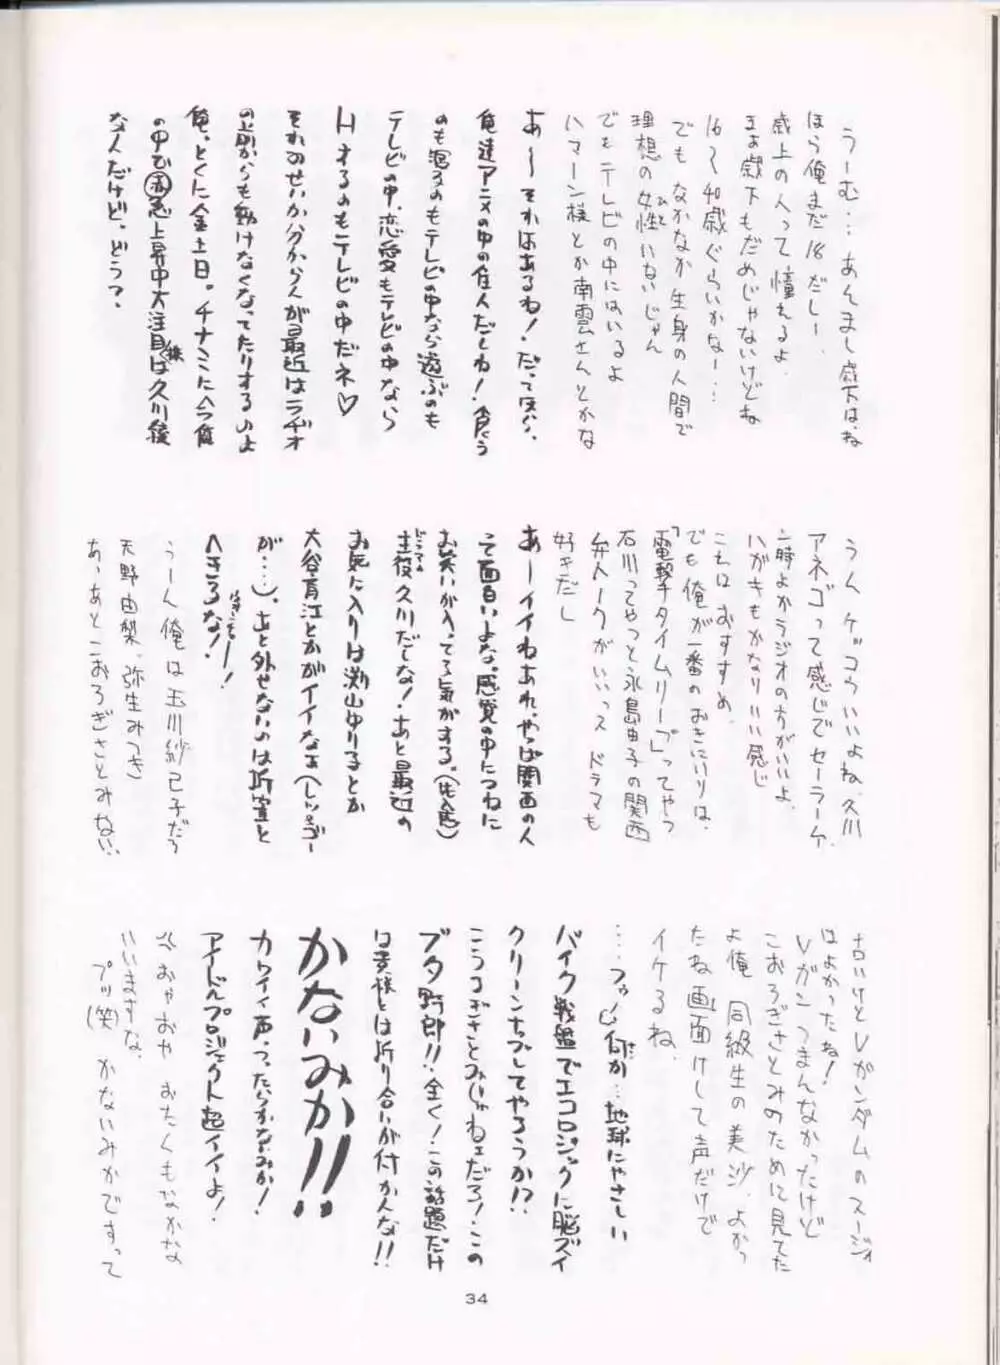 うーむ…あんまし歳下はね
ほら俺まだ18だしー、
歳上の人って憧れるよ
まぁ歳下もだめじゃないけどね
16〜40歳ぐらいかなー…
でも なかなか生身の人間で
理想の女性いないじゃん
でもテレビの中にはいるよ
ハマーン様とか南雲さんとかな
あ〜〜それはあるね!だって
俺達アニメの中の住人だしね!食う
のも寝るのもテレビの中なら遊ぶのも
テレビの中、恋愛もテレビの中なら
HするのもテレビのFだネ♡
それのせいか分からんが最近はラヂオ
の前からも動けなくなってたりするのよ
俺。とくに金土日。チナミに今俺
の中で急上昇中大注目株は久川綾
な人だけど、どう?
うん ケッコウいいよね、久川
アネゴって感じでセーラーの
時よかラジオの方がいいよ、
ハガキもかなりいい感じ
これはおすすめ、
でも俺が一番のおきにいりは、
「電撃タイムリープ」ってやつ
石川ってやつと永島由子の関西
弁トークがいいっス ドラマも
好きだし
あーイイねあれ。やっぱ関西の人
って面白いよな。感覚の中につねに
お笑いが入ってる気がする。
主役久川だしな!あと最近の
お気に入りは渕山ゆり子とか
大谷育江とかがイイなぁ
が…)。あと外せないのは折笠と
へきるな!
うーん 俺は玉川紗己子だろ
天野由梨、弥生みつき
あーあとこおろぎさとみない、
古いけどVガンダムのスージィ
はよかったね!
Vガンつまんなかったけど
こおろぎさとみのために見てた
よ俺 同級生の美沙、よかっ
たね画面けして声だけで
イケるね、
…フッ 何か…地球にやさしい
バイク戦盤でエコロジックに脳ズイ
クリーンナップしてやろうか!?
こうろぎさとみじゃねェだろ!この
ブタ野郎!!全く!この話題だけ
は貴様とは折り合いが付かんな!!
かないみか!!
カワイイ声っつったらかないみか!
アイドルプロジェクト超イイよ!
おやおや おたくもなかな
いいますな、
プッ(笑) かないみかですって
34